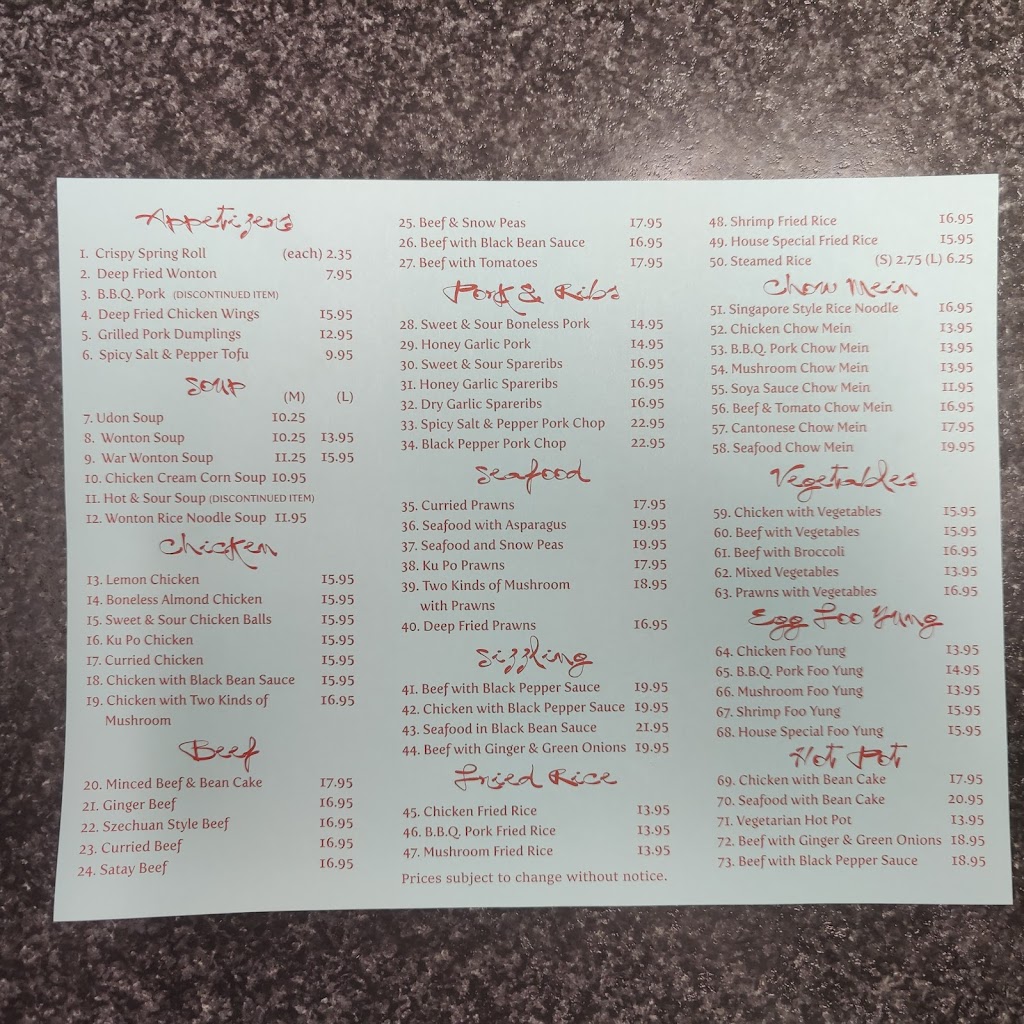 Appetizers
1. Crispy Spring Roll (each) 2.35
2. Deep Fried Wonton 7.95
3. B.B.Q. Pork (DISCONTINUED ITEM)
4. Deep Fried Chicken Wings 15.95
5. Grilled Pork Dumplings 12.95
6. Spicy Salt & Pepper Tofu 9.95
Soup
(M) (L)
7. Udon Soup 10.25
8. Wonton Soup 10.25 13.95
9. War Wonton Soup 11.25 15.95
10. Chicken Cream Corn Soup 10.95
11. Hot & Sour Soup (DISCONTINUED ITEM)
12. Wonton Rice Noodle Soup 11.95
Chicken
13. Lemon Chicken 15.95
14. Boneless Almond Chicken 15.95
15. Sweet & Sour Chicken Balls 15.95
16. Ku Po Chicken 15.95
17. Curried Chicken 15.95
18. Chicken with Black Bean Sauce 15.95
19. Chicken with Two Kinds of 16.95
Mushroom
Beef
20. Minced Beef & Bean Cake 17.95
21. Ginger Beef 16.95
22. Szechuan Style Beef 16.95
23. Curried Beef 16.95
24. Satay Beef 16.95
25. Beef & Snow Peas 17.95
26. Beef with Black Bean Sauce 16.95
27. Beef with Tomatoes 17.95
Pork & Ribs
28. Sweet & Sour Boneless Pork 14.95
29. Honey Garlic Pork 14.95
30. Sweet & Sour Spareribs 16.95
31. Honey Garlic Spareribs 16.95
32. Dry Garlic Spareribs 16.95
33. Spicy Salt & Pepper Pork Chop 22.95
34. Black Pepper Pork Chop 22.95
Seafood
35. Curried Prawns 17.95
36. Seafood with Asparagus 19.95
37. Seafood and Snow Peas 19.95
38. Ku Po Prawns 17.95
39. Two Kinds of Mushroom 18.95
with Prawns
40. Deep Fried Prawns 16.95
Sizzling
41. Beef with Black Pepper Sauce 19.95
42. Chicken with Black Pepper Sauce 19.95
43. Seafood in Black Bean Sauce 21.95
44. Beef with Ginger & Green Onions 19.95
Fried Rice
45. Chicken Fried Rice 13.95
46. B.B.Q. Pork Fried Rice 13.95
47. Mushroom Fried Rice 13.95
Prices subject to change without notice.
48. Shrimp Fried Rice 16.95
49. House Special Fried Rice 15.95
50. Steamed Rice (S) 2.75 (L) 6.25
Chow Mein
51. Singapore Style Rice Noodle 16.95
52. Chicken Chow Mein 13.95
53. B.B.Q. Pork Chow Mein 13.95
54. Mushroom Chow Mein 13.95
55. Soya Sauce Chow Mein 11.95
56. Beef & Tomato Chow Mein 16.95
57. Cantonese Chow Mein 17.95
58. Seafood Chow Mein 19.95
Vegetables
59. Chicken with Vegetables 15.95
60. Beef with Vegetables 15.95
61. Beef with Broccoli 16.95
62. Mixed Vegetables 13.95
63. Prawns with Vegetables 16.95
Egg Foo Yung
64. Chicken Foo Yung 13.95
65. B.B.Q. Pork Foo Yung 14.95
66. Mushroom Foo Yung 13.95
67. Shrimp Foo Yung 15.95
68. House Special Foo Yung 15.95
Hot Pot
69. Chicken with Bean Cake 17.95
70. Seafood with Bean Cake 20.95
71. Vegetarian Hot Pot 13.95
72. Beef with Ginger & Green Onions 18.95
73. Beef with Black Pepper Sauce 18.95